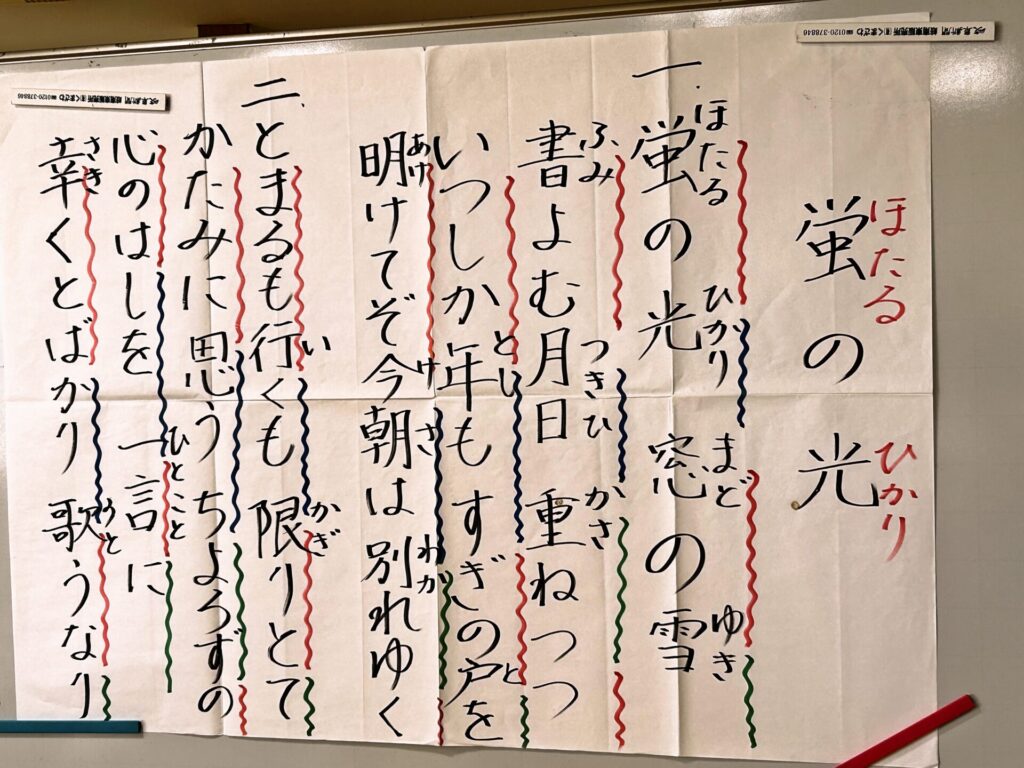 岐阜新聞 くまざわ 0120-378846
岐阜新聞 くまざわ 0120-378846
ほたる ひかり
蛍の光
ほたる ひかり まど ゆき
一.蛍の光 窓の雪
ふみ つきひ かさ
書よむ月日 重ねつつ
とし と
いつしか年も すぎの戸を
あけ けさ わか
明けてぞ今朝は 別れゆく
い かぎ
二、とまるも行くも 限りとて
かたみに思う ちよろずの
ひとこと
心のはしを 一言に
さき うた
幸くとばかり 歌うなり